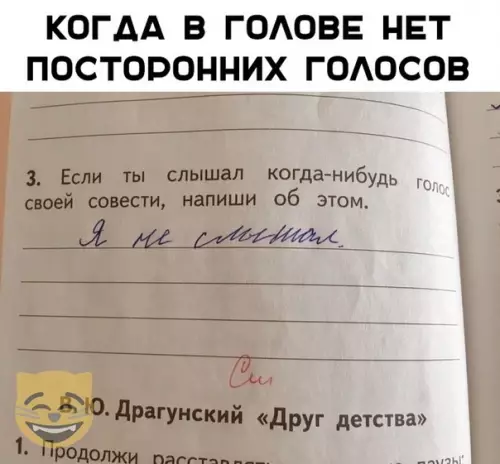 КОГДА В ГОЛОВЕ НЕТ
ПОСТОРОННИХ ГОЛОСОВ
3. Если ты слышал когда-нибудь голос
своей совести, напиши об этом.
Я не слышал.
См
В. Ю. Драгунский «Друг детства»
1. Продолжи паузы: